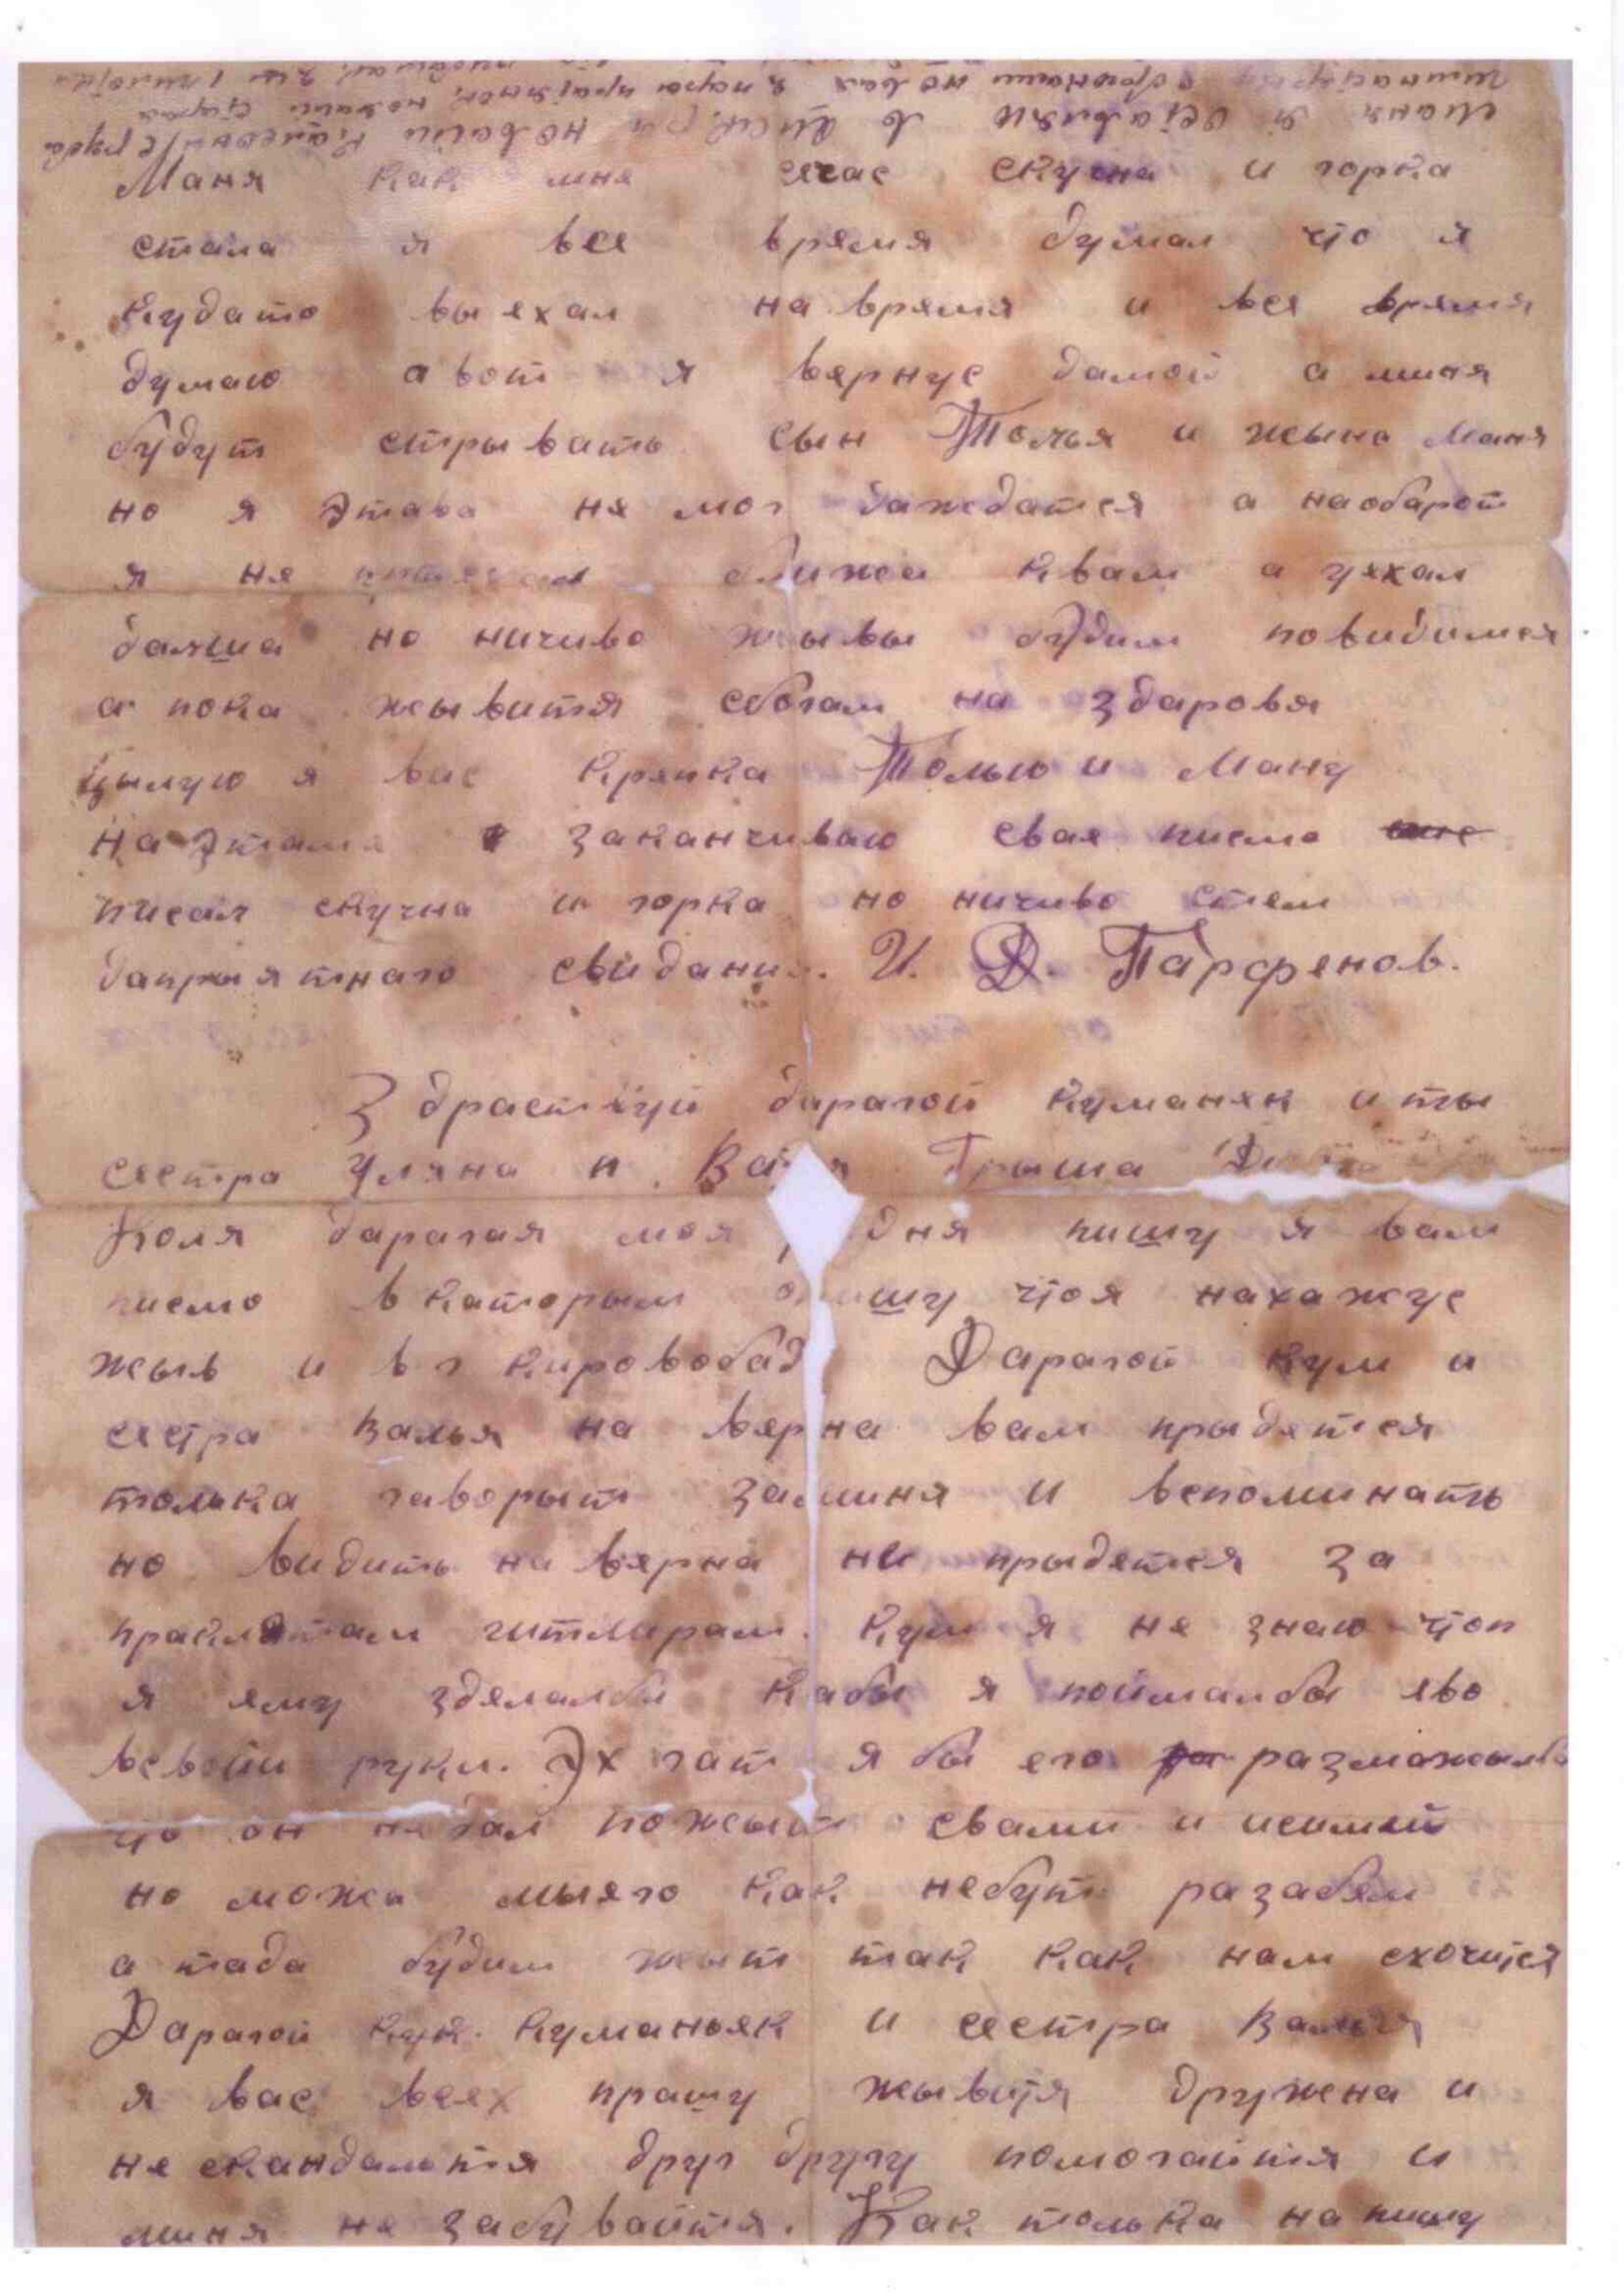 Маня я оставляю в
Маня как мня счас скучна и горка
стала я все врямя думал что я
кудато выяхал наврямя и вся врямя
думаю а вот я вярнус дамой а миня
будут стрывать сын Толья и жына Маня
но я этава ня мог даждатся а наобарот
я ня ближа квам а уяхал
далша но ничиво жывы будим повидимся
а пока жывитя сбогам на здаровья
цылую я вас кряпка Толью и Маню
на этам заканчиваю свая писмо
писал скучна и горка но ничиво стем
дапрыятнаго свидания. И. Д. Парфенов.
Здраствуй дарагой куманяк и ты
сястра Уляна и Валя Грыша
Коля дарагая моя дня пишу я вам
писмо вкаторым шу чтоя нахажус
жыв и в г кировобад Дарагой кум и
сястра Валья навярна вам прыдятся
толька гаворыт замшня и вспоминать
но видить навярна не прыдятся за
праклятам гитлирам. Кум я ня знаю чтоп
я яму здялалбы кабы я поймалбы яво
всваи руки. Эх гат я бы его размажылбы
что он нядал пожыт свами и
но можа мыяго как небут разабям
а тада будим жыт так как нам схочится
Дарагой кум. куманьяк и сястра Валья
я вас всях прашу жывитя дружена и
ня скандальтя друг другу помогайтя и
миня ня забувайтя. Как толька напишу